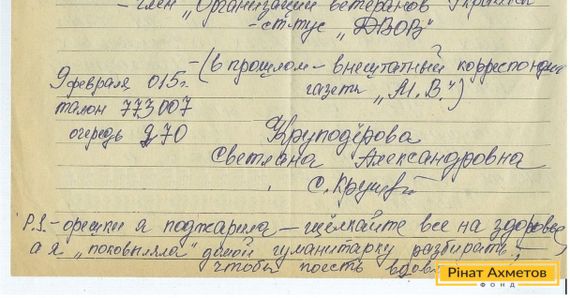 - член „Организации ветеранов Украины
- статус „ДВОВ"
- (в прошлом - внештатный корреспонд
газеты „М.В.")
9 февраля 015г.
талон 773007
очередь 270
Круподёрова
Светлана Александровна
P.S. - орешки я поджарила - щёлкайте все на здоровье,
а я „поковыляла" домой гуманитарку разбирать, -
чтобы поесть вдов
Рінат Ахметов
ФОНД